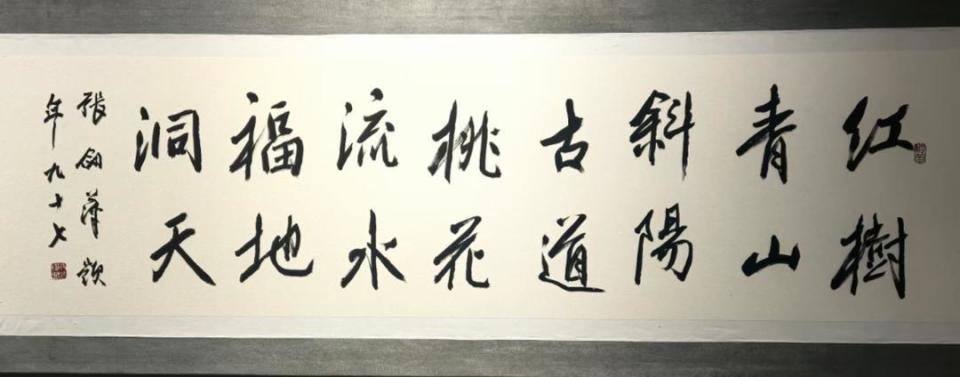 红樹
青山
斜陽
古道
桃花
流水
福地
洞天
張
年九十七